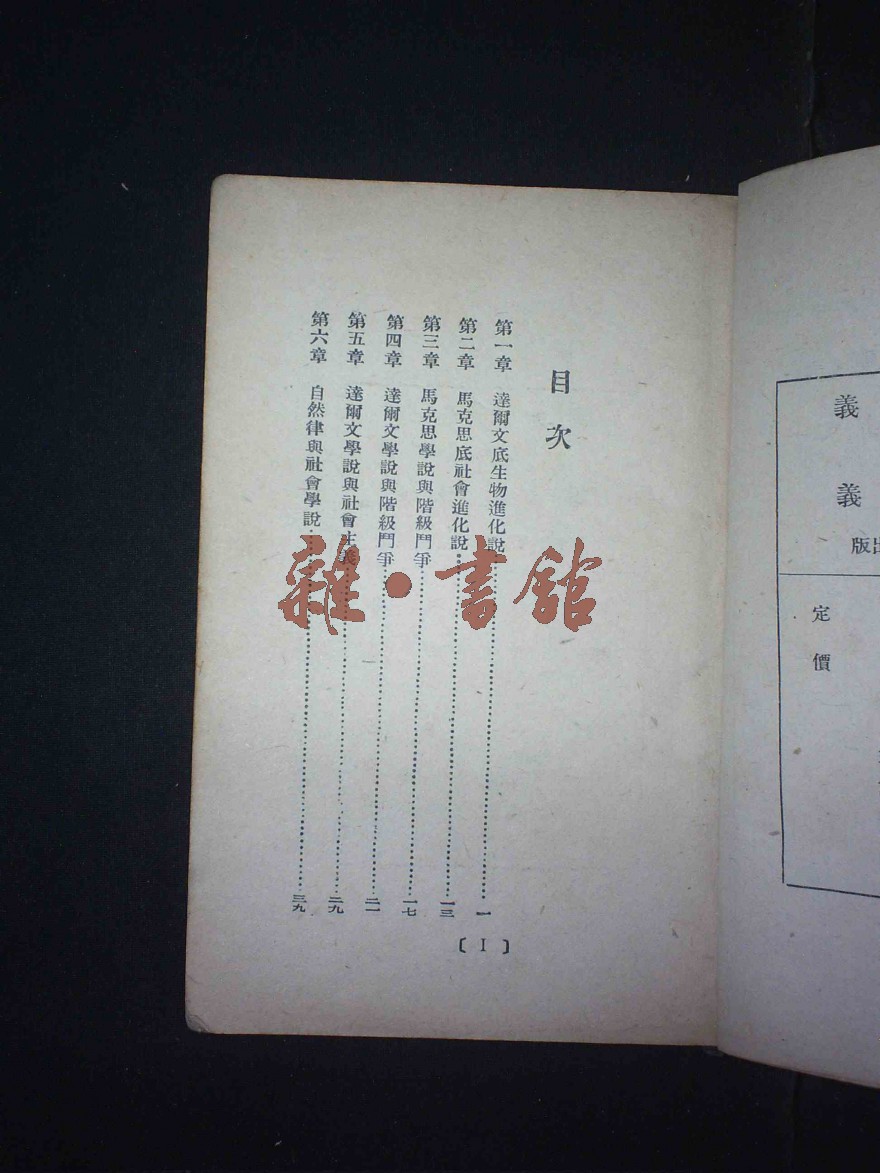 義
義
出版
定價
目次
第一章 達爾文底生物進化說 一
第二章 馬克思底社會進化說 一三
第三章 馬克思學說與階級鬥爭 一七
第四章 達爾文學說與階級鬥爭 二一
第五章 達爾文學說與社會主義 二九
第六章 自然律與社會學說 三九
〔I〕
雜·書館